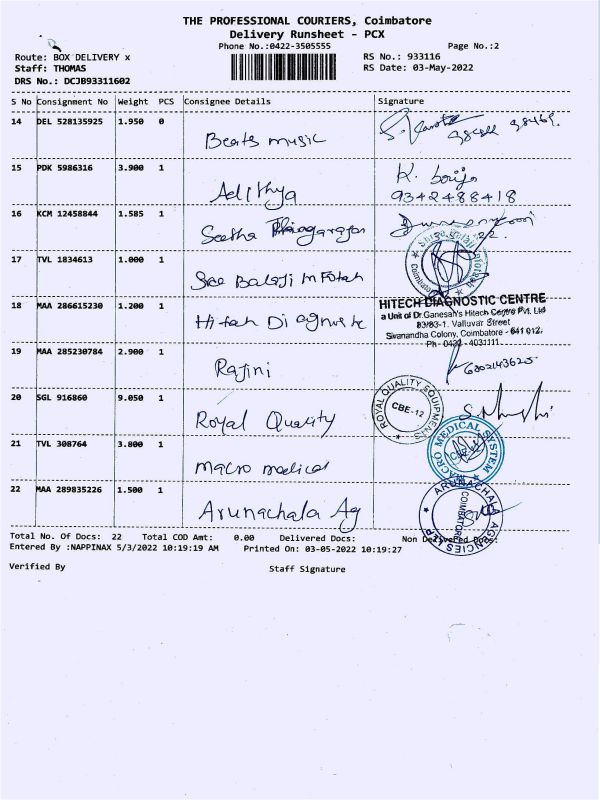 THE PROFESSIONAL COURIERS, Coimbatore
Delivery Runsheet - PCX
Phone No.:0422-3505555
Page No.:2
Route: BOX DELIVERY x
RS No.: 933116
Staff: THOMAS
RS Date: 03-May-2022
DRS No.: DCJB93311602
S No Consignment No Weight PCS Consignee Details Signature
14 DEL 528135925 1.950 0
Beats music
15 PDK 5986316 3.900 1
Adithya
K.
9342488418
16 KCM 12458844 1.585 1
Seetha
17 TVL 1834613 1.000 1
Sree Balaji
18 MAA 286615230 1.200 1
Hitech Diagnostic
HITECH DIAGNOSTIC CENTRE
a Unit of Dr.Ganesan's Hitech Centre Pvt. Ltd
83/83-1. Valluvar Street
Sivanandha Colony, Coimbatore - 641 012.
Ph - 0422 - 4031111
19 MAA 285230784 2.900 1
Rajini
20 SGL 916860 9.050 1
Royal Quality
ROYAL QUALITY EQUIPMENTS
CBE-12
21 TVL 308764 3.800 1
Macro medical
MACRO MEDICAL SYSTEM
22 MAA 289835226 1.500 1
Arunachala Ag
ARUNACHALA AGENCIES LLP
COIMBATORE
Total No. Of Docs: 22 Total COD Amt: 0.00 Delivered Docs: Non Delivered Docs:
Entered By :NAPPINAX 5/3/2022 10:19:19 AM Printed On: 03-05-2022 10:19:27
Verified By Staff Signature